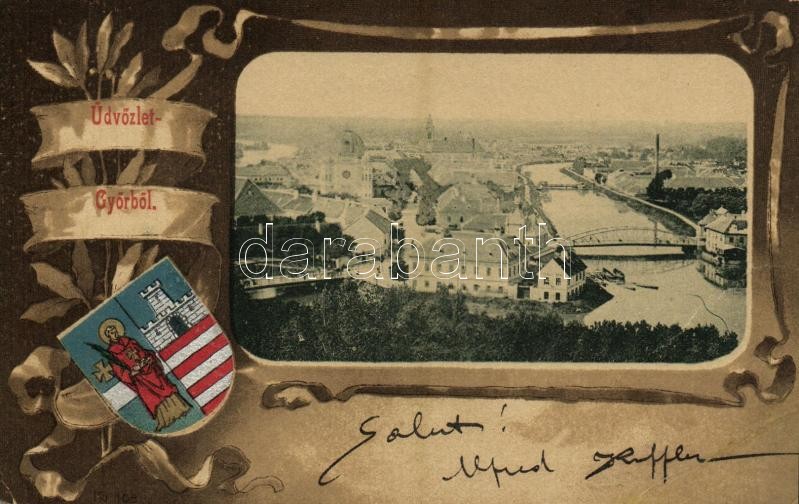 Üdvözlet-
Győrből.
darabanth.com
Salut!
Alfred